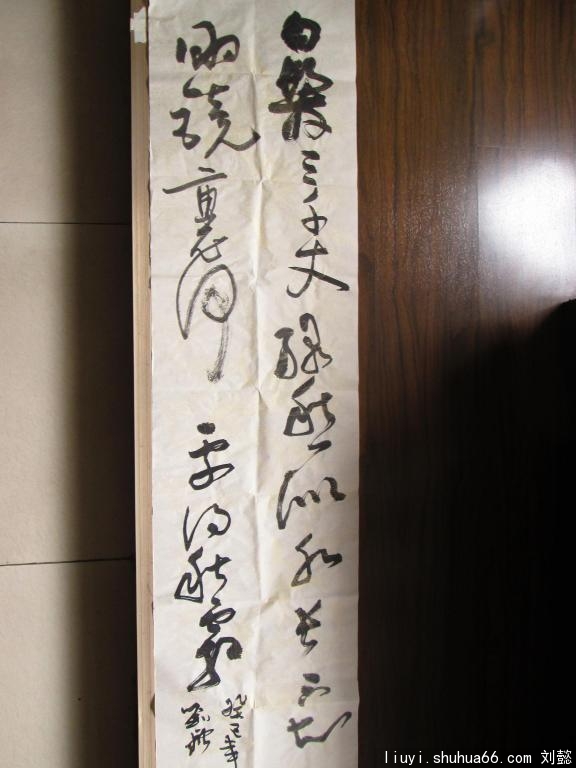 白髮三千丈緣愁似個長不知
明鏡裏何處得秋霜
癸巳年
劉懿
liuyi.shuhua66.com 刘懿